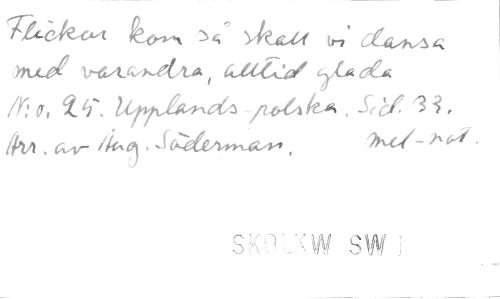 Flickor kom så skall vi dansa
med varandra, alltid glada
N:o. 25. Upplands-polska. Sid. 33.
Arr. av Aug. Söderman. mel-not.
SKOLKW SW